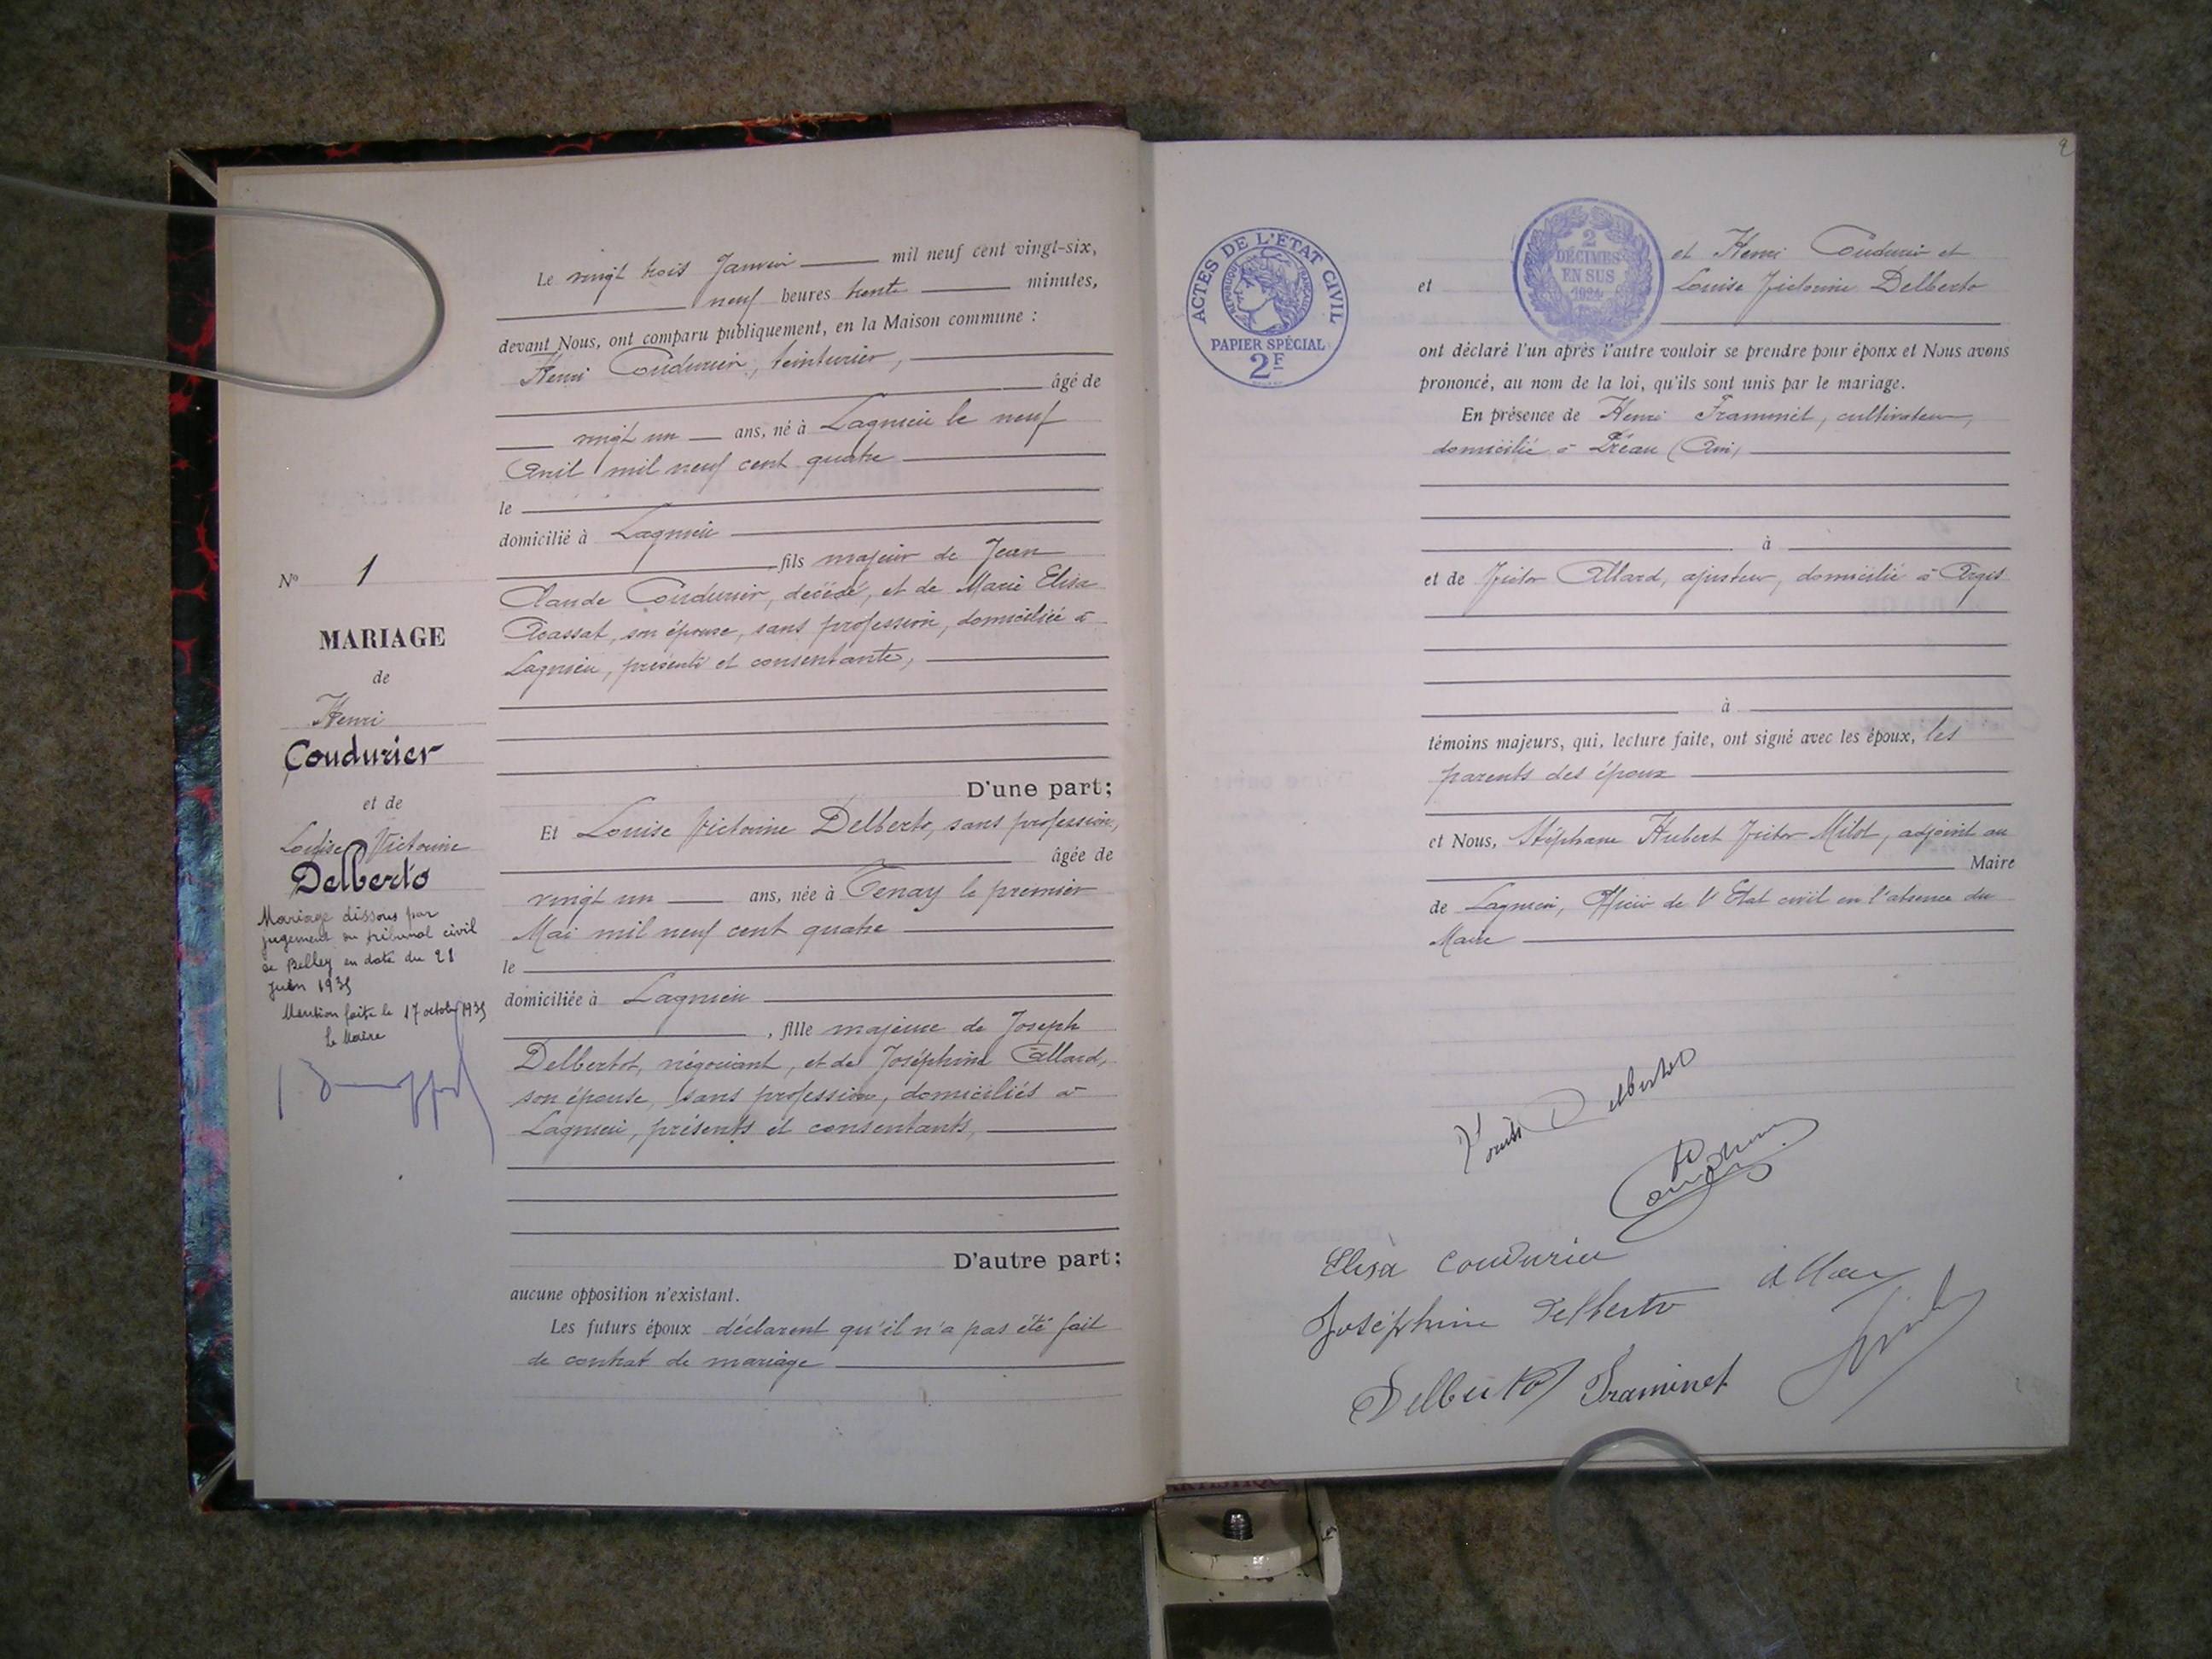 Le vingt trois Janvier mil neuf cent vingt-six,
neuf heures trente minutes,
devant Nous, ont comparu publiquement, en la Maison commune :
Henri Coudurier, teinturier,
âgé de
vingt un ans, né à Lagnieu le neuf
Avril mil neuf cent quatre
le
domicilié à Lagnieu
fils majeur de Jean
Claude Coudurier, décédé, et de Marie Elisa
son épouse, sans profession, domiciliée à
Lagnieu, présente et consentante,
D'une part;
Et Louise Victorine Delberto, sans profession,
âgée de
vingt un ans, née à Tenay le premier
Mai mil neuf cent quatre
le
domiciliée à Lagnieu
, fille majeure de Joseph
Delberto, négociant, et de Joséphine Allard,
son épouse, sans profession, domiciliés à
Lagnieu, présents et consentants,
D'autre part;
aucune opposition n'existant.
Les futurs époux déclarent qu'il n'a pas été fait
de contrat de mariage
N° 1
MARIAGE
de
Henri
Coudurier
et de
Louise Victorine
Delberto
Mariage dissous par
jugement du tribunal civil
de Belley en date du 21
Juin 1935
Mention faite le 17 octobre 1935
Le Maire
2
ACTES DE L'ÉTAT CIVIL
RÉPUBLIQUE FRANÇAISE
PAPIER SPÉCIAL
2F
2
DÉCIMES
EN SUS
1924
et Henri Coudurier et
et Louise Victorine Delberto
ont déclaré l'un après l'autre vouloir se prendre pour époux et Nous avons
prononcé, au nom de la loi, qu'ils sont unis par le mariage.
En présence de Henri Framinet, cultivateur,
domicilié à (Ain)
à
et de Victor Allard, ajusteur, domicilié à Argis
à
témoins majeurs, qui, lecture faite, ont signé avec les époux, les
parents des époux
et Nous, Stéphane Hubert Victor Milot, adjoint au
Maire
de Lagnieu, Officier de l'Etat civil en l'absence du
Maire
Delberto
Elisa Coudurier
Joséphine Delberto Allard
Delberto Framinet